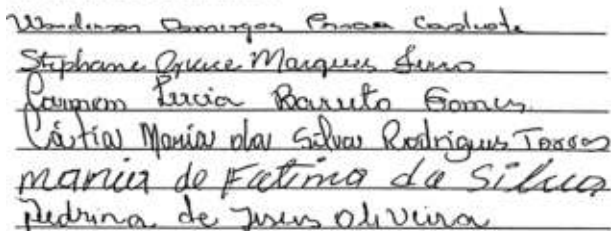 Wanderson Domingos
Stephane Grace Marques
Carmem Lucia Barreto Gomes
Cástia Maria da Silva Rodrigues Torres
maria de Fatima da Silva
Pedrina de Jesus Oliveira